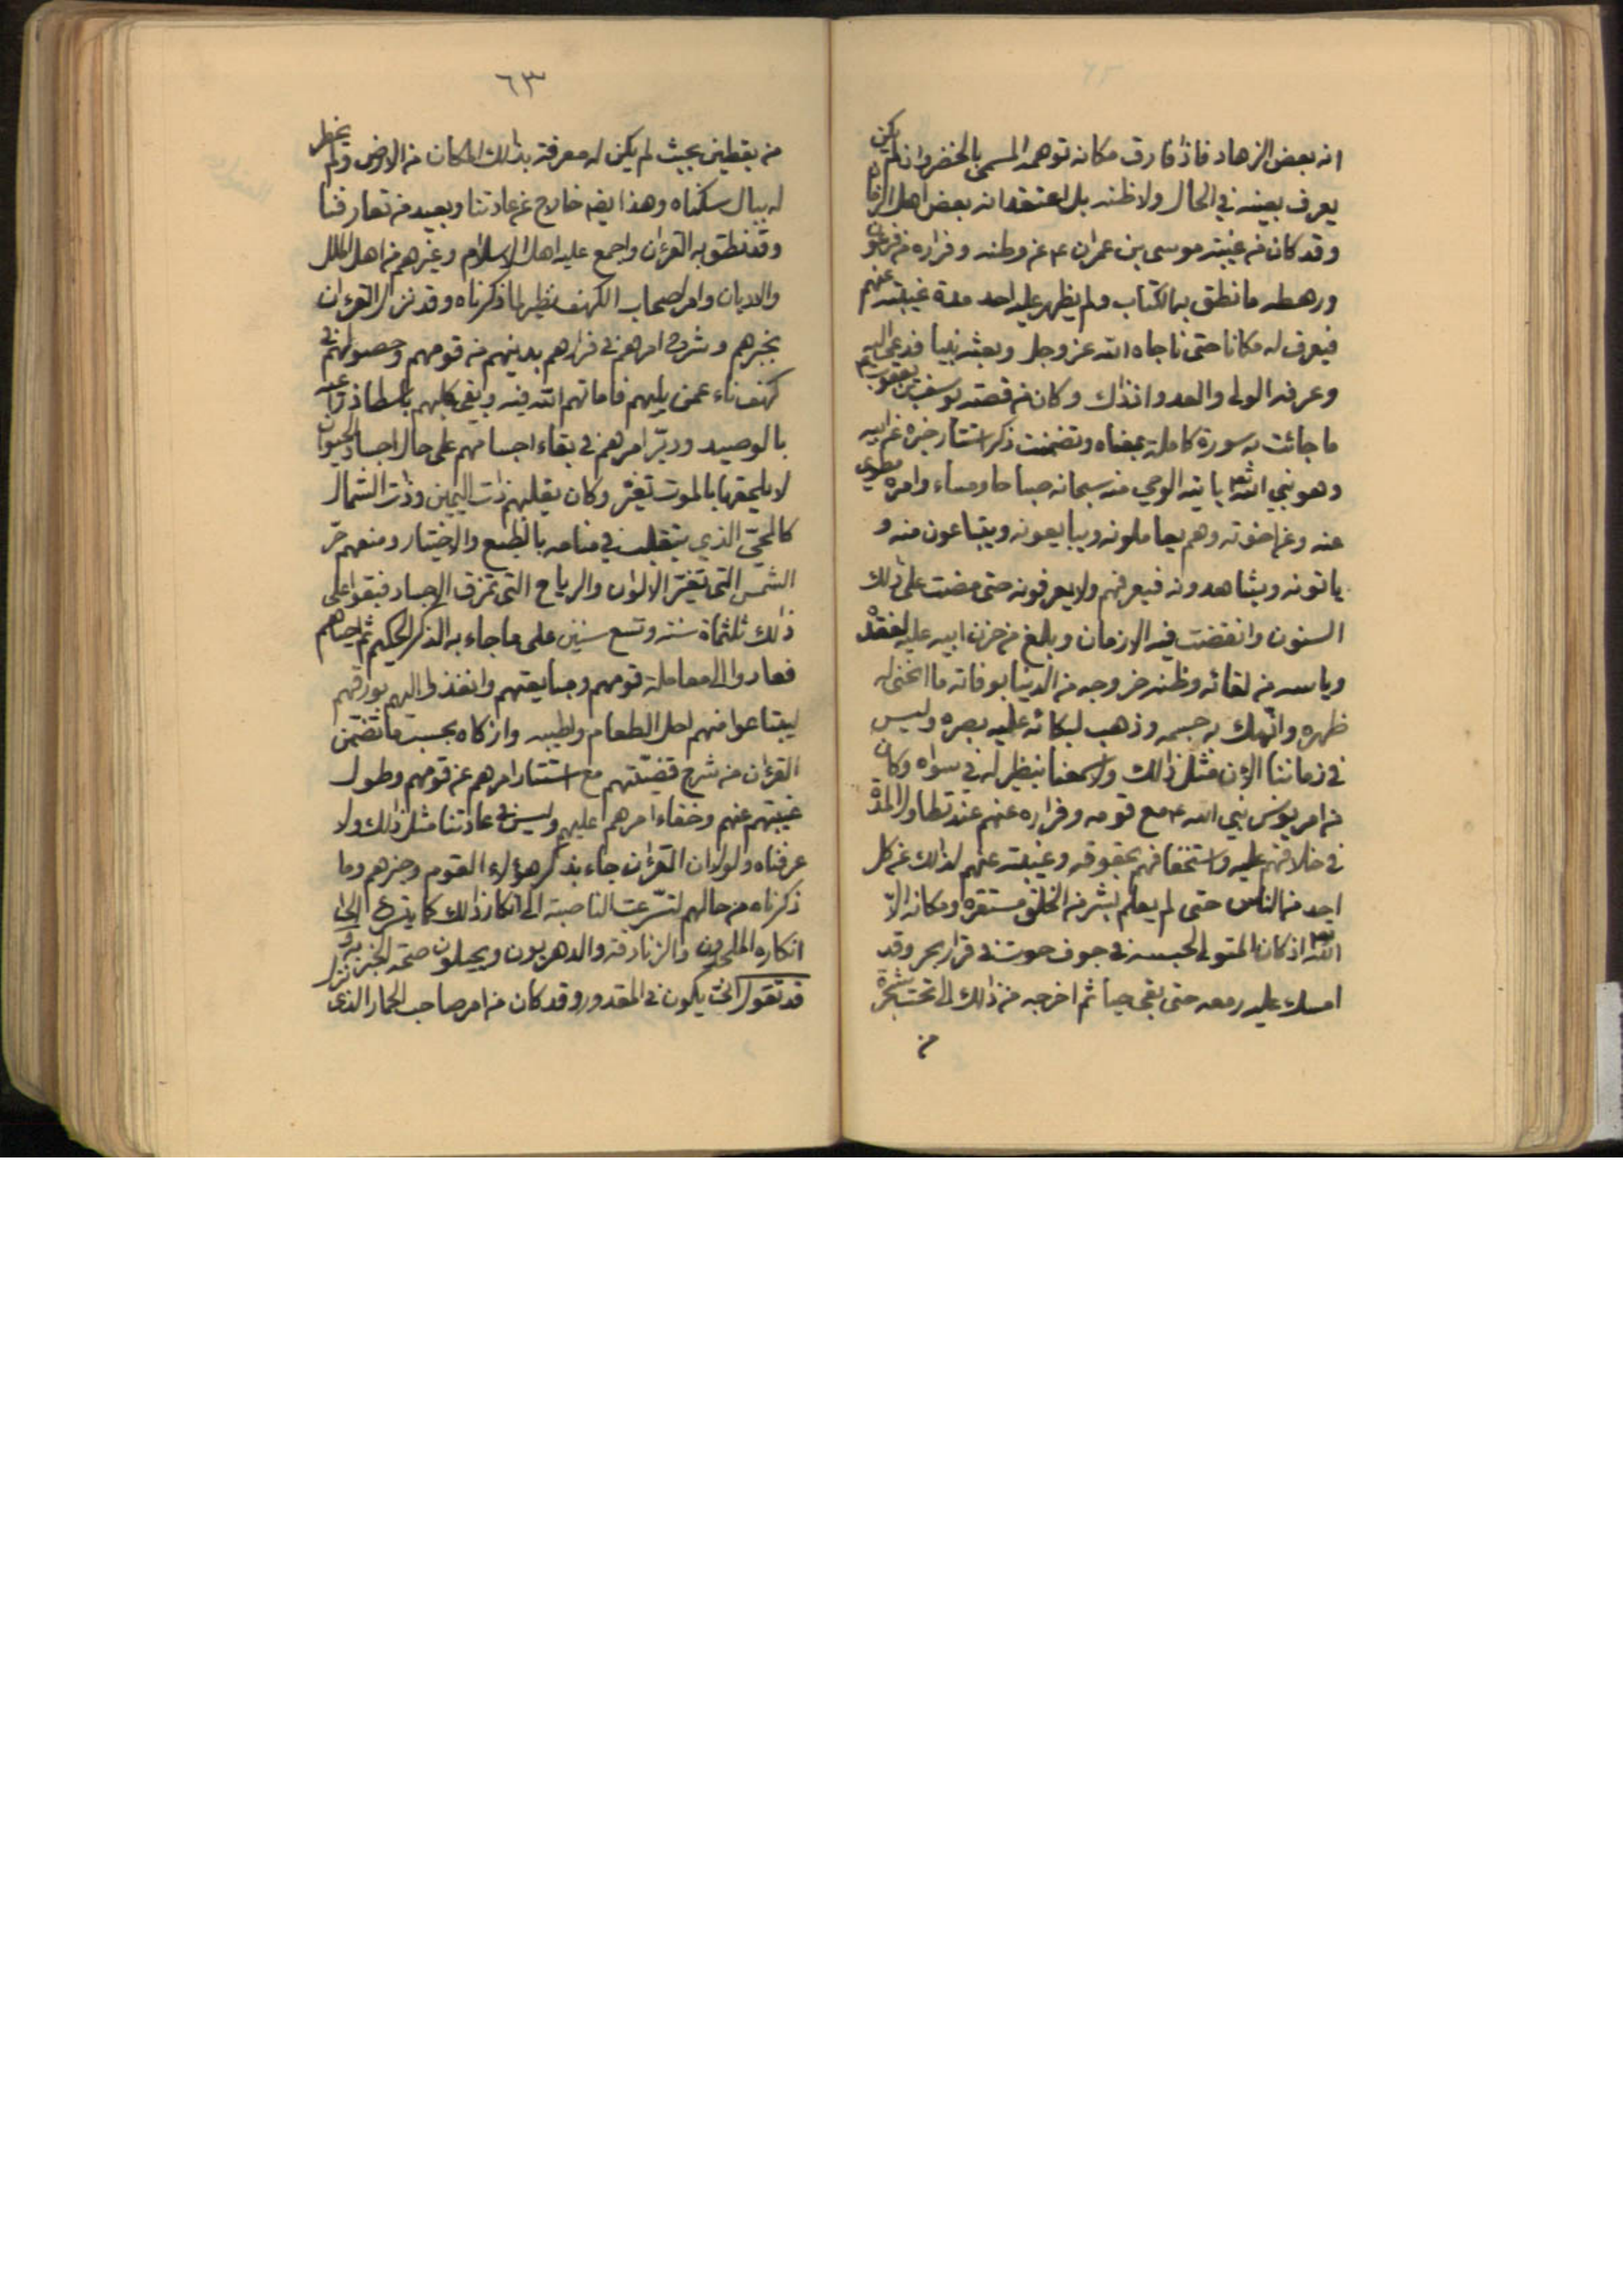 انه بعض الزهاد فاذا فارق مكانه توهمه المسمى بالخضر وان لم يكن
يعرف بعينه في الحال ولا ظنه بل اعتقد انه بعض اهل الزمان
وقد كان من غيبة موسى بن عمران ع عن وطنه وفراره من فرعون
ورهطه ما نطق به الكتاب ولم يظهر عليه احد مدة غيبته عنهم
فيعرف له مكانا حتى ناجاه الله عز وجل وبعثه نبيا فدعى اليه
وعرفه الولى والعدو اذ ذاك وكان من قصته يوسف بن يعقوب ع
ما جائت به سورة كاملة بمعناه وتضمنت ذكر استتار خبره عن ابيه
وهو نبي الله تع ياتيه الوحي منه سبحانه صباحا ومساء وامره مطوى
عنه وعن اخوته وهم يعاملونه ويبايعونه ويبتاعون منه و
ياتونه ويشاهدونه فيعرفهم ولا يعرفونه حتى مضت على ذلك
السنون وانقضت فيه الازمان وبلغ من حزن ابيه عليه لفقده
وياسه من لقائه وظنه خروجه من الدنيا بوفاته ما انحنى له
ظهره وانهك به جسمه وذهب لبكائه عليه بصره وليس
في زماننا الان مثل ذلك ولا سمعنا بنظير له في سواه وكان
من امر يونس نبي الله ع مع قومه وفراره عنهم عند تطاول المدة
في خلافهم عليه واستخفافهم بحقوقه وغيبته عنهم لذلك عن كل
احد من الناس حتى لم يعلم بشر من الخلق مستقره ومكانه الا
الله تع اذ كان المتولى لحبسه في جوف حوت في قرار بحر وقد
امسك عليه رمقه حتى بقى حيا ثم اخرجه من ذلك الى تحت شجرة
من
٦٣
من يقطين بحيث لم يكن له معرفة بذلك المكان من الارض ولم يخطر
له ببال سكناه وهذا ايضا خارج عن عادتنا وبعيد من تعارفنا
وقد نطق به القرءان واجمع عليه اهل الاسلام وغيرهم من اهل الملل
والاديان وامر اصحاب الكهف نظير لما ذكرناه وقد نزل القرءان
بخبرهم وشرح امرهم في فرارهم بدينهم من قومهم وحصولهم في
كهف ناء عمن يليهم فاماتهم الله فيه وبقى كلبهم باسطا ذراعيه
بالوصيد ودبر امرهم في بقاء اجسامهم على حال اجساد الحيوان
لا يلحقها بالموت تغير وكان يقلبهم ذات اليمين وذات الشمال
كالحي الذي يتقلب في منامه بالطبع والاختيار ومنعهم حر
الشمس التي تغير الالوان والرياح التي تمزق الاجساد فبقوا على
ذلك ثلثمائة سنة وتسع سنين على ما جاء به الذكر الحكيم ثم احياهم
فعادوا الى معاملة قومهم ومبايعتهم وانفذوا اليهم بورقهم
ليبتاعوا منهم احل الطعام واطيبه وازكاه بحسب ما تضمن
القرءان من شرح قضيتهم مع استتار امرهم عن قومهم وطول
غيبتهم عنهم وخفاء امرهم عليهم وليس في عادتنا مثل ذلك ولا
عرفناه ولولا ان القرءان جاء بذكر هؤلاء القوم وخبرهم وما
ذكرناه من حالهم لتسرعت الناصبة الى انكار ذلك كما يتسرع الى
انكاره الملحدون والزنادقة والدهريون ويحيلون صحة الخبر به و
قد تقول لن يكون في المقدور وقد كان من امر صاحب الحمار الذي نزل